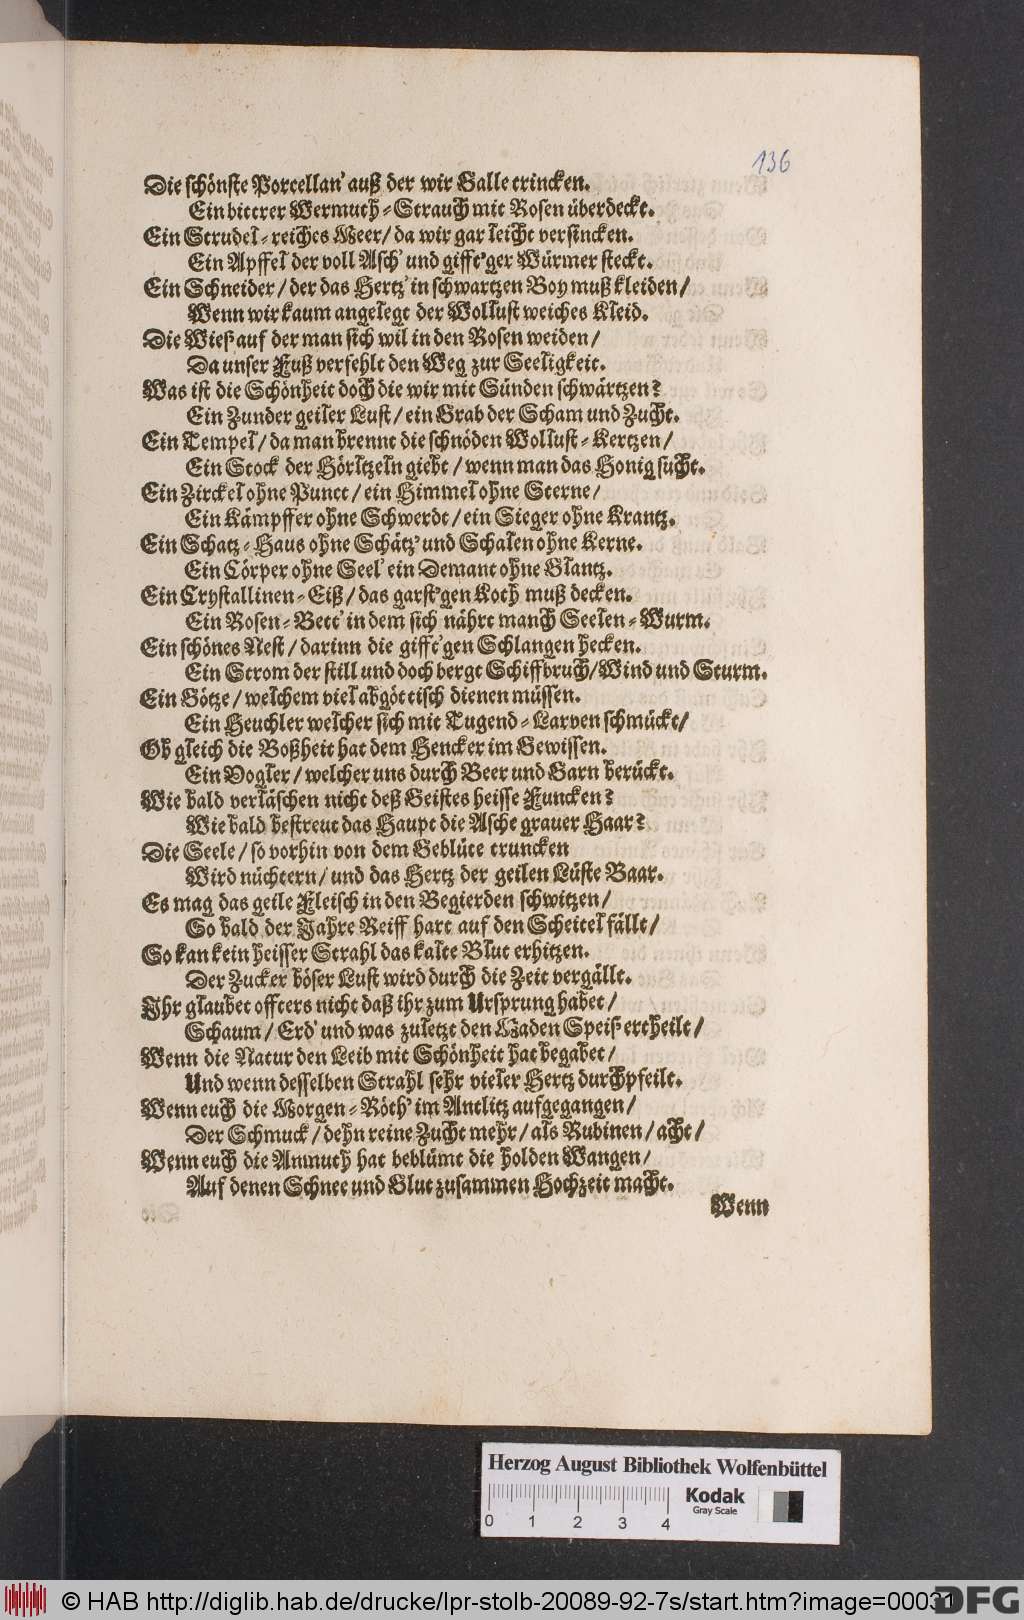 136
Die schönste Porcellan' auß der wir Galle trincken.
Ein bittrer Wermuth-Strauch mit Rosen überdeckt.
Ein Strudel-reiches Meer/ da wir gar leicht versincken.
Ein Apffel der voll Asch' und gifft'ger Würmer steckt.
Ein Schneider/ der das Hertz' in schwartzen Boy muß kleiden/
Wenn wir kaum angelegt der Wollust weiches Kleid.
Die Wieß auf der man sich wil in den Rosen weiden/
Da unser Fuß verfehlt den Weg zur Seeligkeit.
Was ist die Schönheit doch die wir mit Sünden schwärtzen?
Ein Zunder geiler Lust/ ein Grab der Scham und Zucht.
Ein Tempel/ da man brennt die schnöden Wollust-Kertzen/
Ein Stock der Hörltzeln giebt/ wenn man das Honig sucht.
Ein Zirckel ohne Punct/ ein Himmel ohne Sterne/
Ein Kämpffer ohne Schwerdt/ ein Sieger ohne Krantz.
Ein Schatz-Haus ohne Schätz' und Schalen ohne Kerne.
Ein Cörper ohne Seel' ein Demant ohne Glantz.
Ein Crystallinen-Eiß/ das garst'gen Koth muß decken.
Ein Rosen-Bett' in dem sich nährt manch Seelen-Wurm.
Ein schönes Nest/ darinn die gifft'gen Schlangen hecken.
Ein Strom der still und doch bergt Schiffbruch/ Wind und Sturm.
Ein Götze/ welchem viel abgöttisch dienen müssen.
Ein Heuchler welcher sich mit Tugend-Larven schmückt/
Ob gleich die Boßheit hat dem Hencker im Gewissen.
Ein Vogler/ welcher uns durch Beer und Garn berückt.
Wie bald verläschen nicht deß Geistes heisse Funcken?
Wie bald bestreut das Haupt die Asche grauer Haar?
Die Seele/ so vorhin von dem Geblüte truncken
Wird nüchtern/ und das Hertz der geilen Lüste Baar.
Es mag das geile Fleisch in den Begierden schwitzen/
So bald der Jahre Reiff hart auf den Scheitel fällt/
So kan kein heisser Strahl das kalte Blut erhitzen.
Der Zucker böser Lust wird durch die Zeit vergällt.
Ihr glaubet offters nicht daß ihr zum Ursprung habet/
Schaum/ Erd' und was zuletzt den Maden Speiß ertheilt/
Wenn die Natur den Leib mit Schönheit hat begabet/
Und wenn desselben Strahl sehr vieler Hertz durchpfeilt.
Wenn euch die Morgen-Röth' im Antlitz aufgegangen/
Der Schmuck/ dehn reine Zucht mehr/ als Rubinen/ acht/
Wenn euch die Anmuth hat beblümt die holden Wangen/
Auf denen Schnee und Glut zusammen Hochzeit macht.
Wenn
Herzog August Bibliothek Wolfenbüttel
Kodak
Gray Scale
0 1 2 3 4
© HAB http://diglib.hab.de/drucke/lpr-stolb-20089-92-7s/start.htm?image=00031
DFG